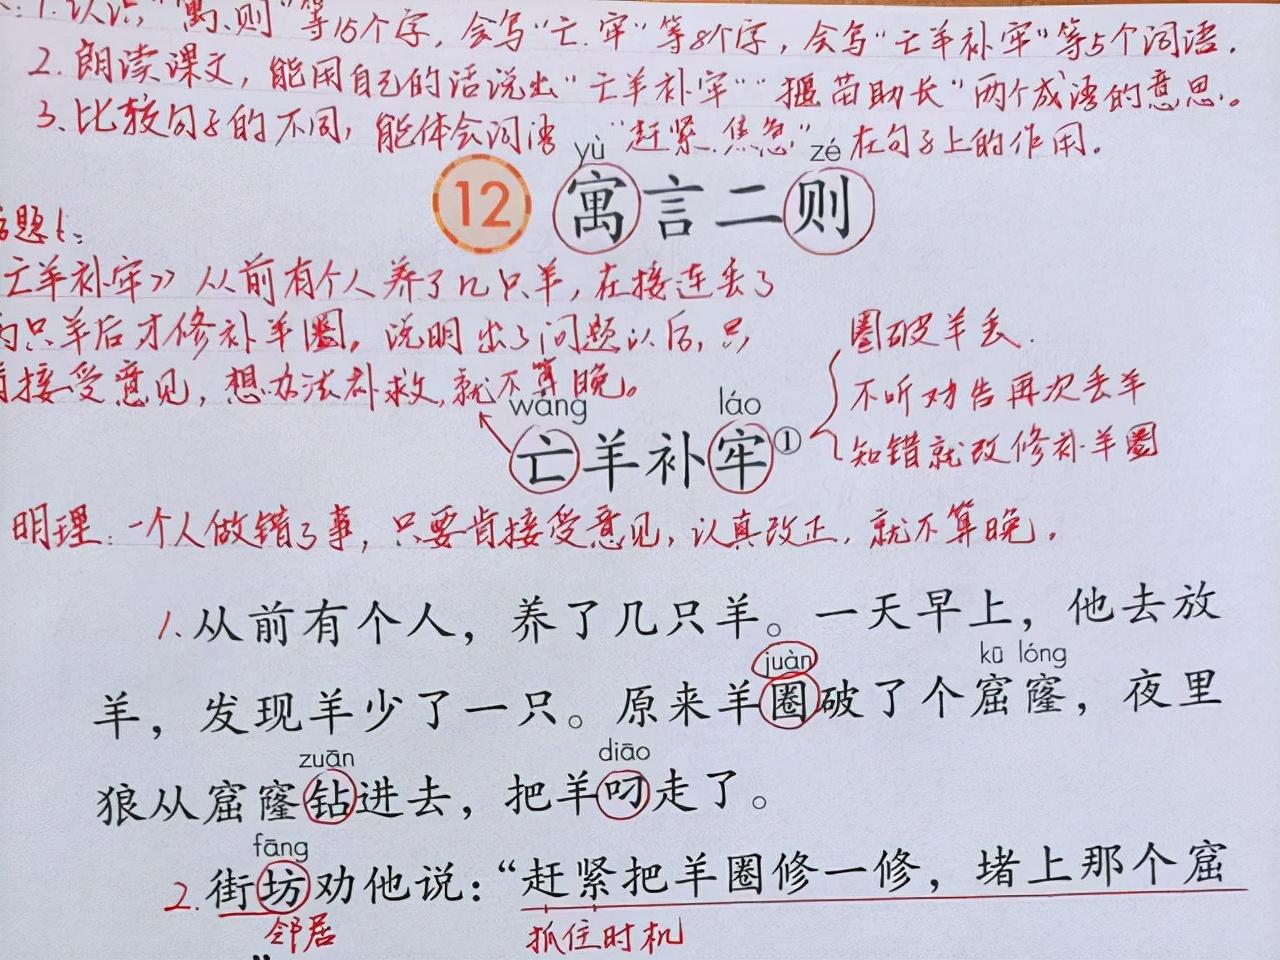 1.认识“寓、则”等15个字，会写“亡、牢”等8个字，会写“亡羊补牢”等5个词语。
2.朗读课文，能用自己的话说出“亡羊补牢”“揠苗助长”两个成语的意思。
3.比较句子的不同，能体会词语“赶紧、焦急”在句子上的作用。
yù zé
12 寓言二则
题1：
亡羊补牢》从前有个人养了几只羊，在接连丢了
只羊后才修补羊圈，说明出了问题以后，只
肯接受意见，想办法补救，就不算晚。
圈破羊丢
不听劝告再次丢羊
知错就改修补羊圈
wáng láo
亡羊补牢①
明理：一个人做错了事，只要肯接受意见，认真改正，就不算晚。
1.从前有个人，养了几只羊。一天早上，他去放
juàn kū lóng
羊，发现羊少了一只。原来羊圈破了个窟窿，夜里
zuān diāo
狼从窟窿钻进去，把羊叼走了。
fāng
2.街坊劝他说：“赶紧把羊圈修一修，堵上那个窟
邻居 抓住时机